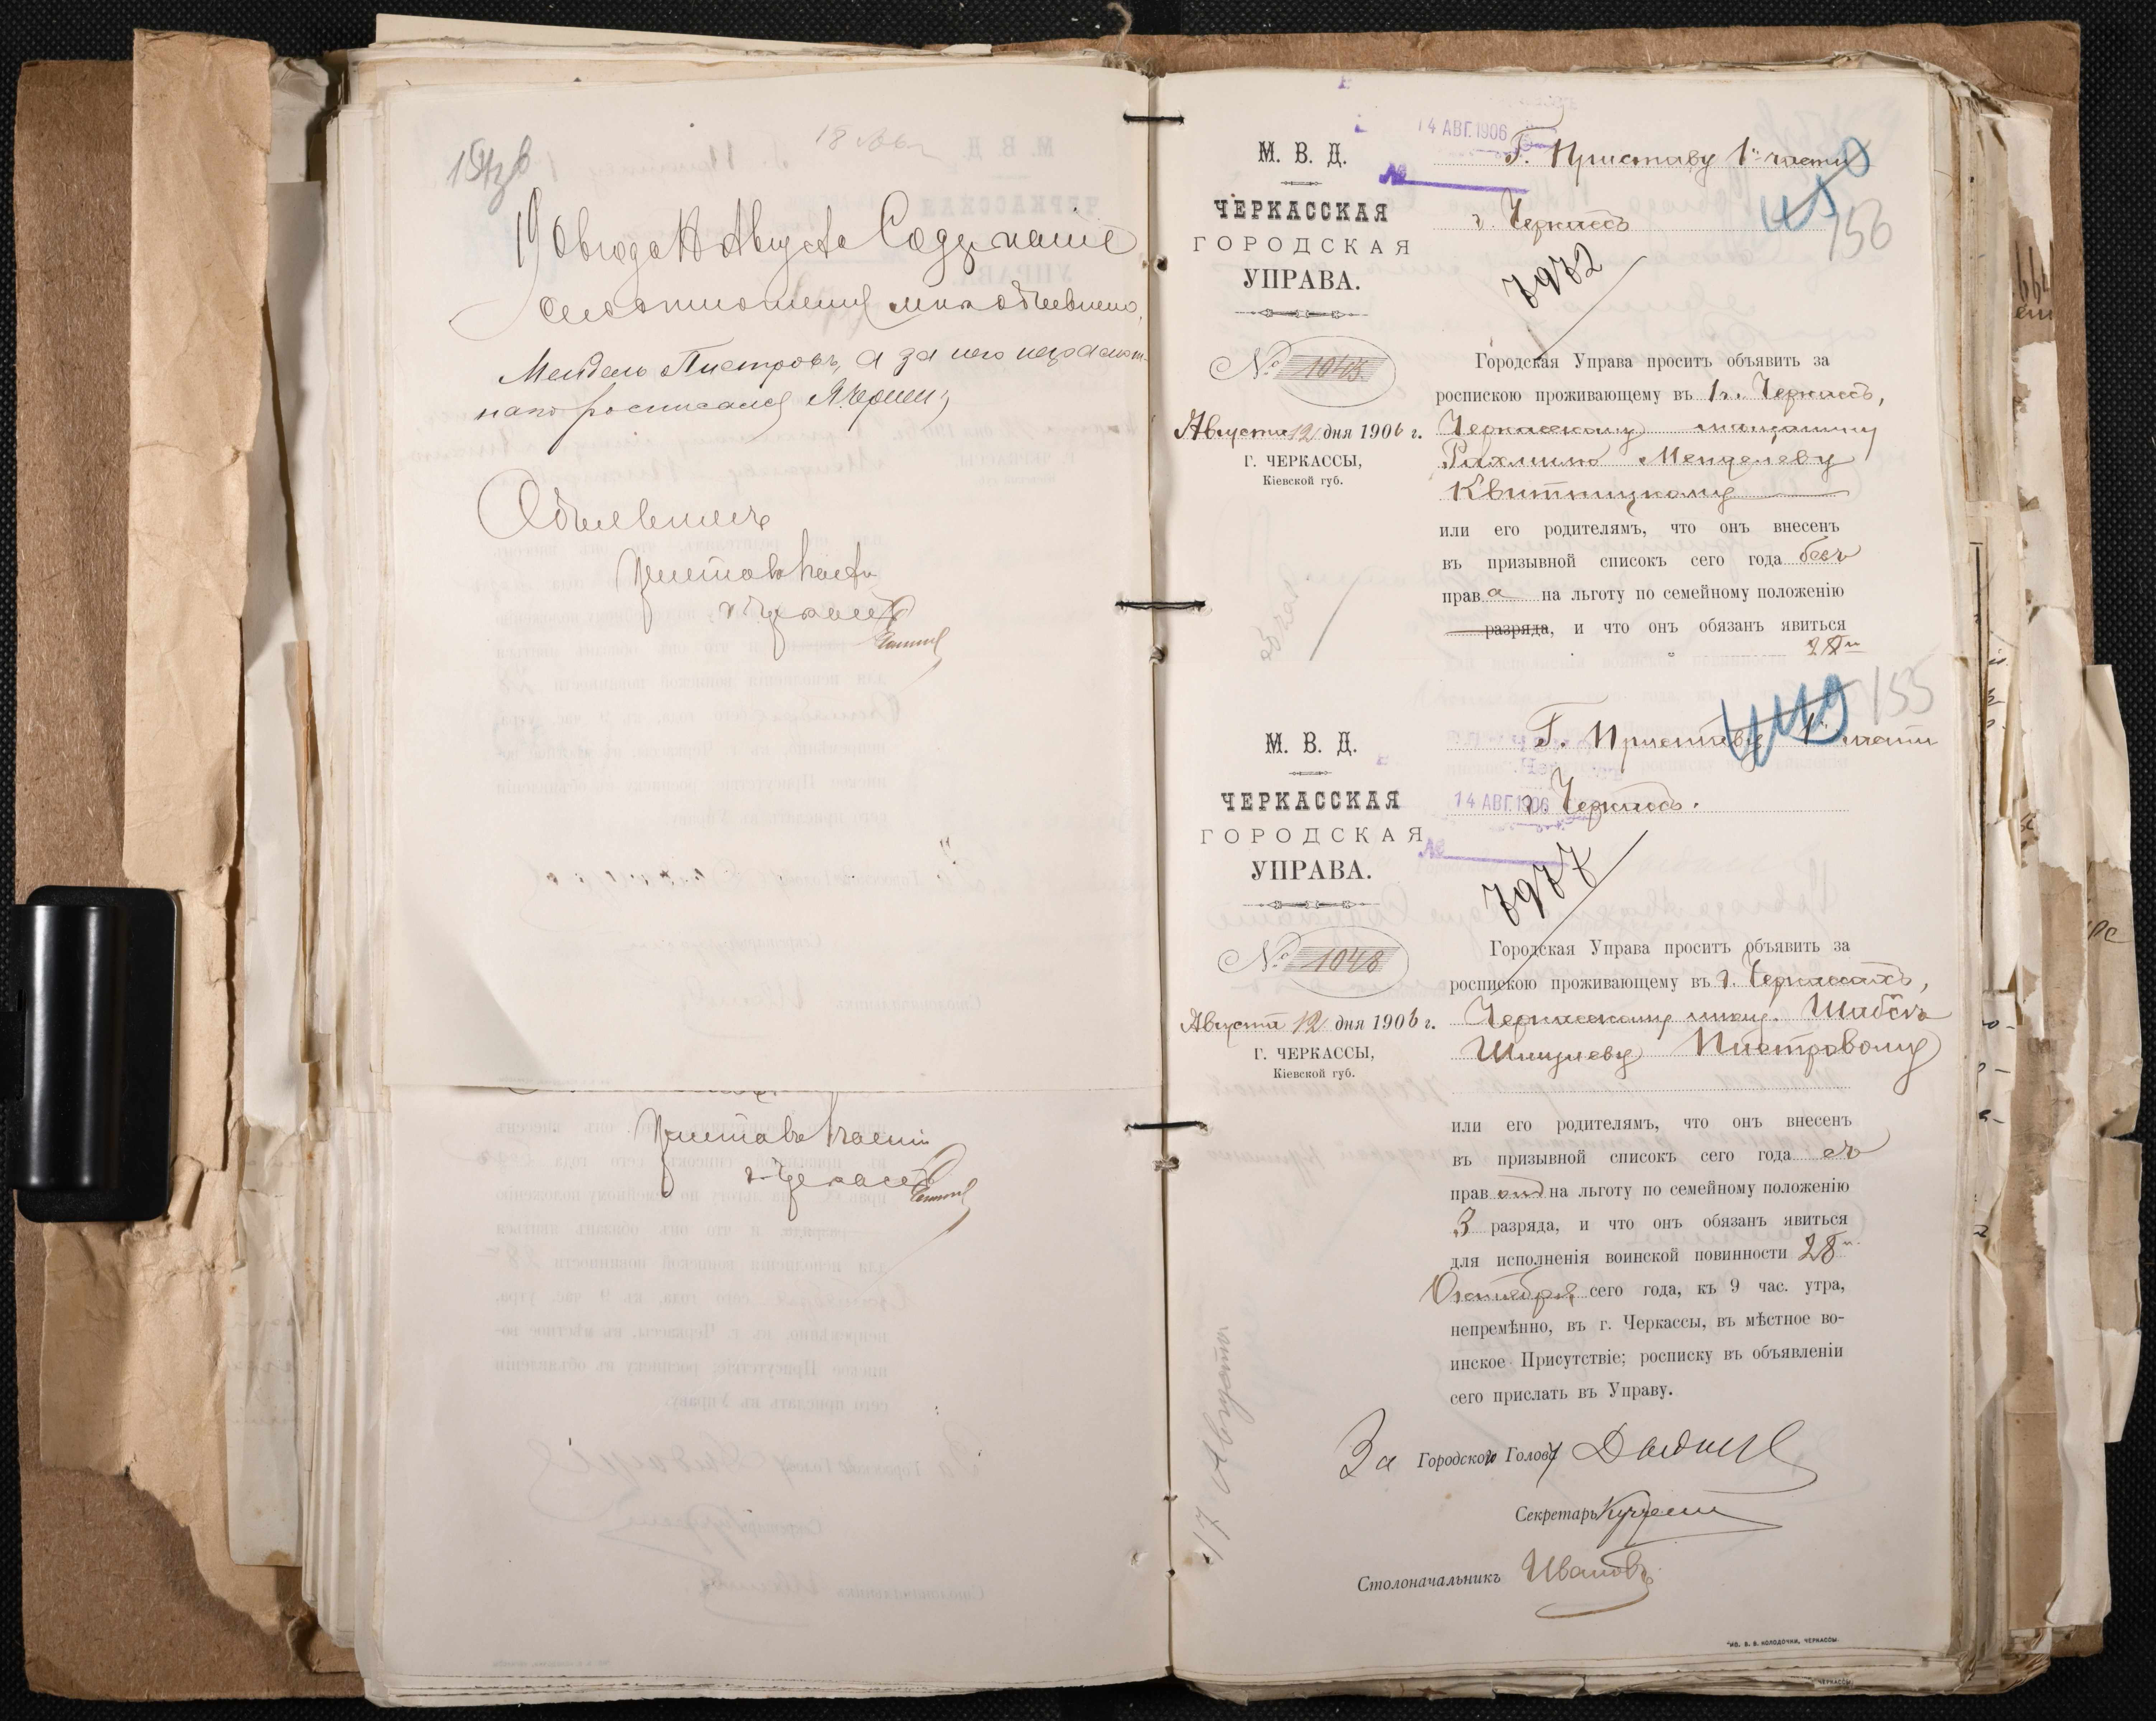 154 об
18 Авг
1906 года 17 Августа Содержание
сего отношения мне объявлено.
Мендель Пистровъ, а за него неграмот-
наго росписался
Объявилъ
Приставъ 1 части
г. Черкассъ
Приставъ 1 части
г. Черкассъ
14 АВГ. 1906
М. В. Д.
ЧЕРКАССКАЯ
ГОРОДСКАЯ
УПРАВА.
№ 1045
Августа 12 дня 1906 г.
Г. ЧЕРКАССЫ,
Кіевской губ.
Г. Приставу 1й части
г. Черкассъ
156
7972
Городская Управа проситъ объявить за
роспискою проживающему въ г. Черкассъ,
Черкасскому мѣщанину
Рахмилю Менделеву
Квитницкому
или его родителямъ, что онъ внесенъ
въ призывной списокъ сего года безъ
права на льготу по семейному положенію
разряда, и что онъ обязанъ явиться
28го
155
М. В. Д.
ЧЕРКАССКАЯ
ГОРОДСКАЯ
УПРАВА.
№ 1048
Августа 12 дня 1906 г.
Г. ЧЕРКАССЫ,
Кіевской губ.
17 Августа
Г. Приставу 1й части
14 АВГ. 1906
г. Черкассъ.
№
7977
Городская Управа проситъ объявить за
роспискою проживающему въ г. Черкассахъ,
Черкасскому мѣщ. Шабсѣ
Шмулеву Пистровому
или его родителямъ, что онъ внесенъ
въ призывной списокъ сего года съ
правомъ на льготу по семейному положенію
3 разряда, и что онъ обязанъ явиться
для исполненія воинской повинности 28го
Октября сего года, къ 9 час. утра,
непремѣнно, въ г. Черкассы, въ мѣстное во-
инское Присутствіе; росписку въ объявленіи
сего прислать въ Управу.
За Городского Голову
Секретарь
Столоначальникъ Ивановъ
ТИП. В. В. КОЛОДОЧКИ, ЧЕРКАССЫ.